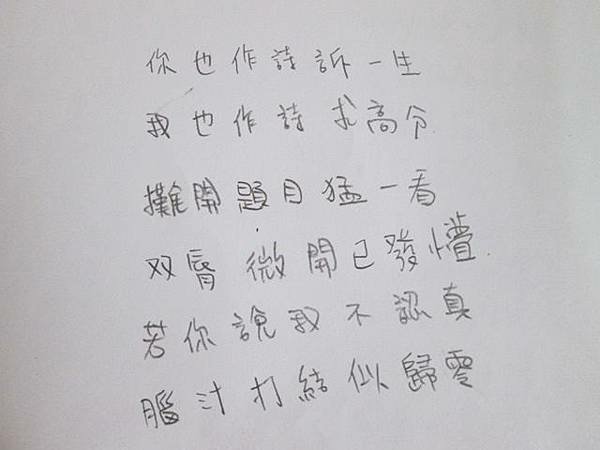 你也作詩訴一生
我也作詩求高分
攤開題目猛一看
双唇微開已發懵
若你說我不認真
腦汁打結似歸零